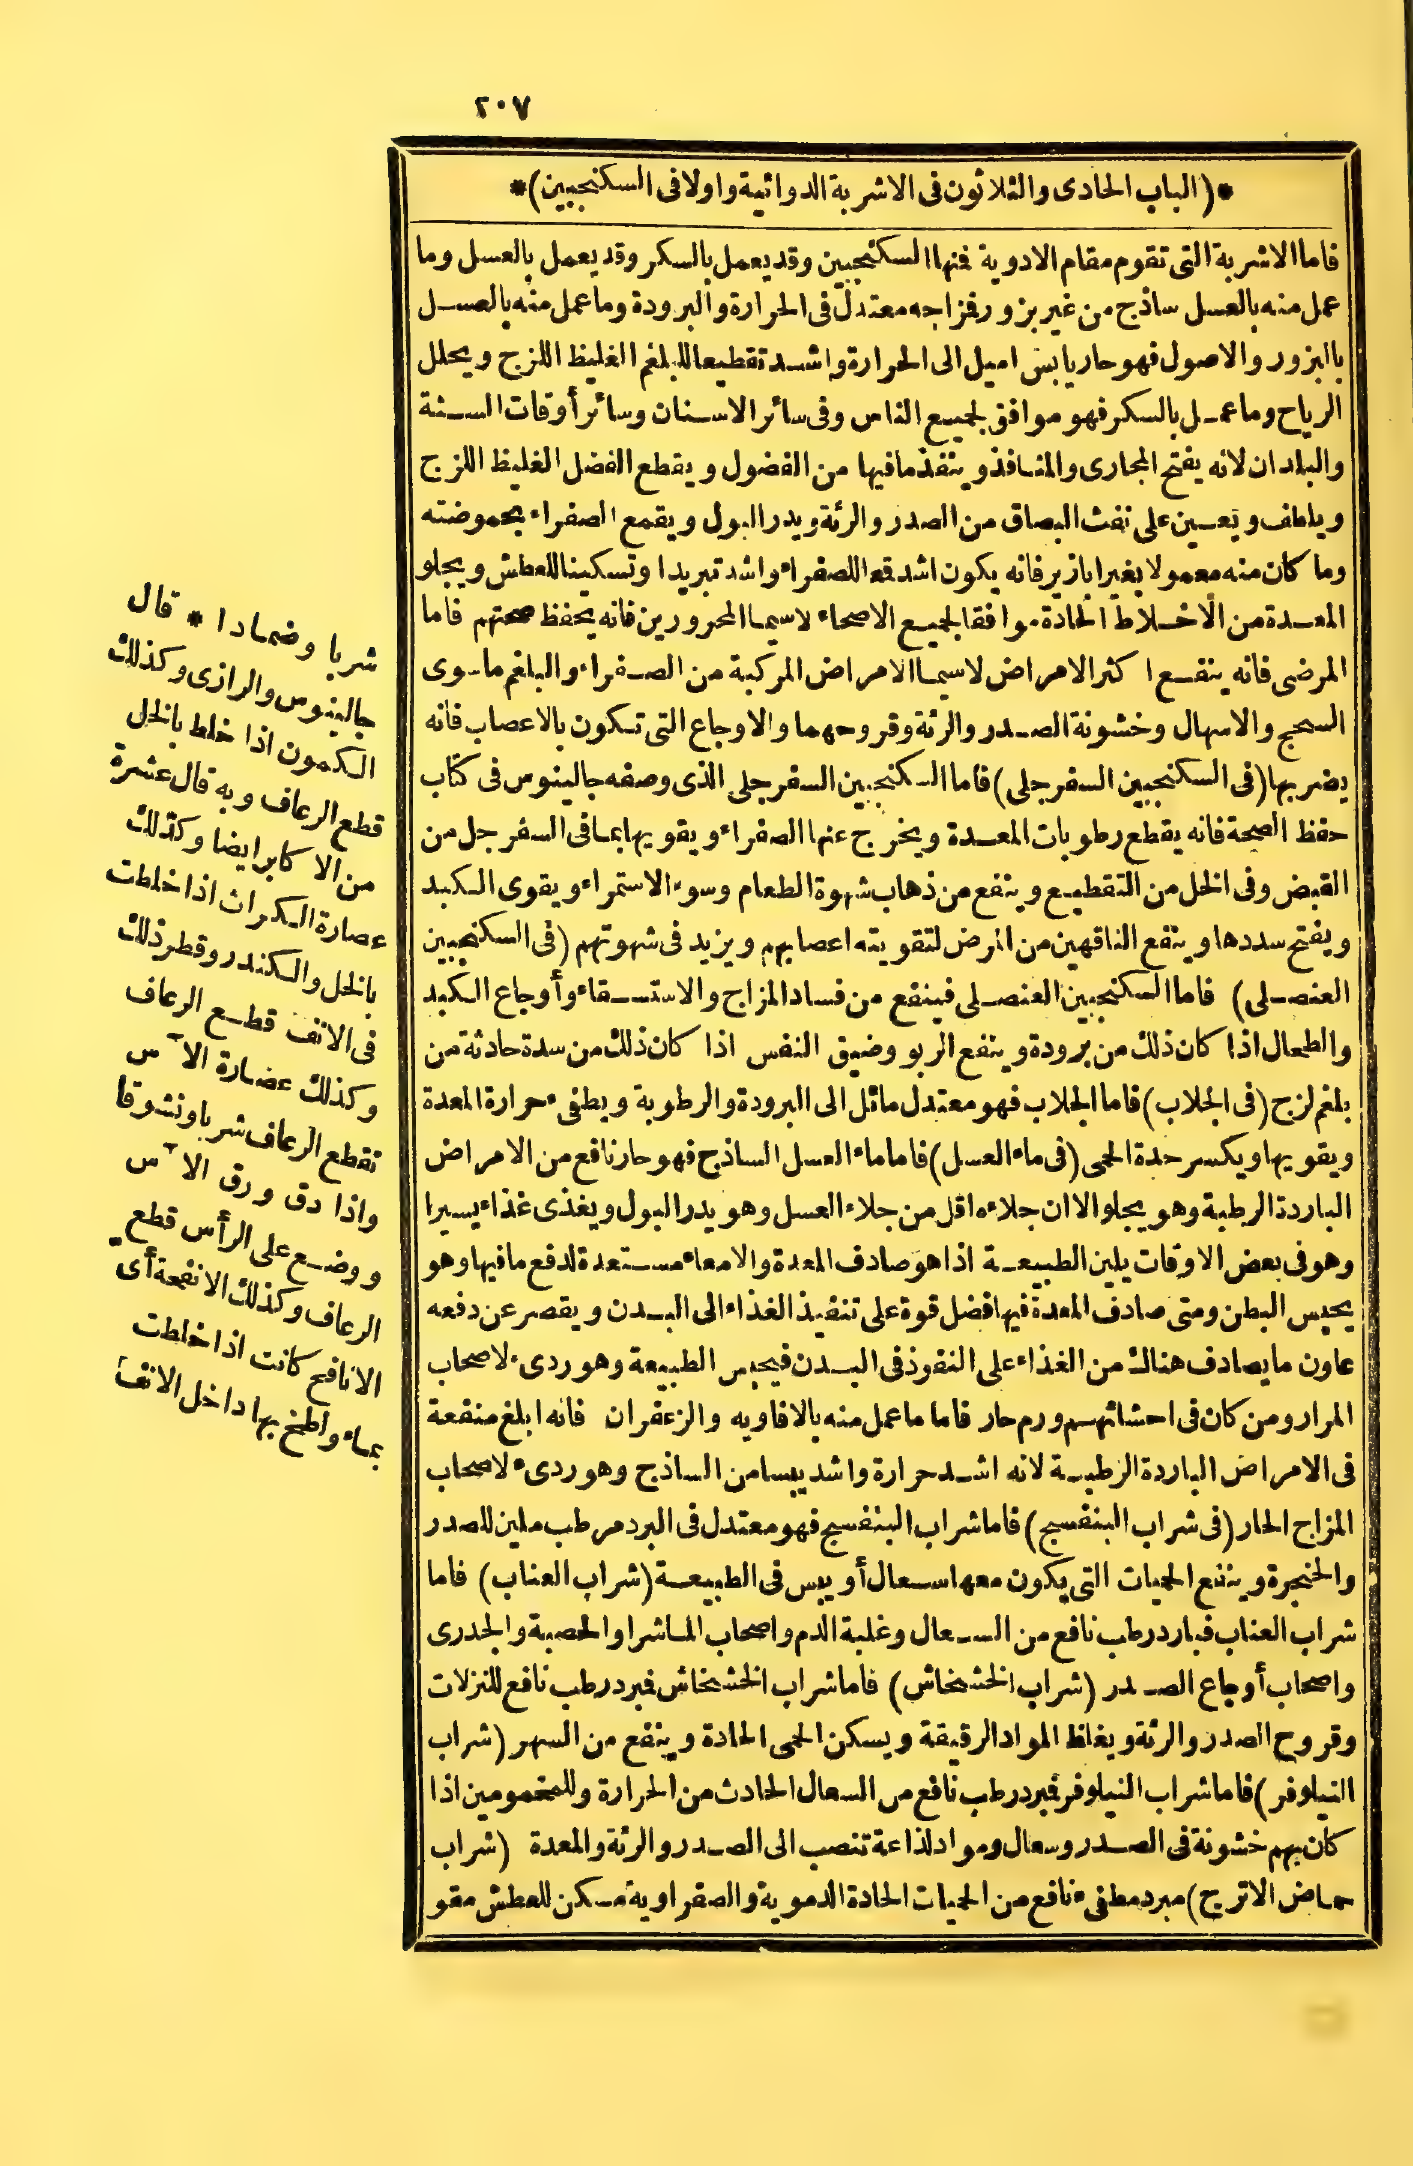 ٢٠٧
*(الباب الحادى والثلاثون فى الاشربة الدوائية واولا فى السكنجبين)*
فاما الاشربة التى تقوم مقام الادوية فمنها السكنجبين وقد يعمل بالسكر وقد يعمل بالعسل وما
عمل منه بالعسل ساذج من غير بزور فمزاجه معتدل فى الحرارة والبرودة وما عمل منه بالعسل
بالبزور والاصول فهو حار يابس اميل الى الحرارة واشد تقطيعا للبلغم الغليظ اللزج ويحلل
الرياح وما عمل بالسكر فهو موافق لجميع الناس وفى سائر الاسنان وسائر أوقات السنة
والبلدان لانه يفتح المجارى والمنافذ وينفذ ما فيها من الفضول ويقطع الفضل الغليظ اللزج
ويلطف ويعين على نفث البصاق من الصدر والرئة ويدر البول ويقمع الصفراء بحموضته
وما كان منه معمولا بغير ابازير فانه يكون اشد قمعا للصفراء واشد تبريدا وتسكينا للعطش ويجلو
المعدة من الاخلاط الحادة موافقا لجميع الاصحاء لاسيما المحرورين فانه يحفظ صحتهم فاما
المرضى فانه ينفع اكثر الامراض لاسيما الامراض المركبة من الصفراء والبلغم ماسوى
السحج والاسهال وخشونة الصدر والرئة وقروحهما والاوجاع التى تكون بالاعصاب فانه
يضر بها (فى السكنجبين السفرجلى) فاما السكنجبين السفرجلى الذى وصفه جالينوس فى كتاب
حفظ الصحة فانه يقطع رطوبات المعدة ويخرج عنها الصفراء ويقويها بما فى السفرجل من
القبض وفى الخل من التقطيع وينفع من ذهاب شهوة الطعام وسوء الاستمراء ويقوى الكبد
ويفتح سددها وينفع الناقهين من المرض لتقويته اعصابهم ويزيد فى شهوتهم (فى السكنجبين
العنصلى) فاما السكنجبين العنصلى فينفع من فساد المزاج والاستسقاء وأوجاع الكبد
والطحال اذا كان ذلك من برودة وينفع الربو وضيق النفس اذا كان ذلك من سدة حادثة من
بلغم لزج (فى الجلاب) فاما الجلاب فهو معتدل مائل الى البرودة والرطوبة ويطفىء حرارة المعدة
ويقويها ويكسر حدة الحمى (فى ماء العسل) فاما ماء العسل الساذج فهو حار نافع من الامراض
الباردة الرطبة وهو يجلو الا ان جلاءه اقل من جلاء العسل وهو يدر البول ويغذى غذاء يسيرا
وهو فى بعض الاوقات يلين الطبيعة اذا هو صادف المعدة والامعاء مستعدة لدفع ما فيها وهو
يحبس البطن ومتى صادف المعدة فيها فضل قوة على تنفيذ الغذاء الى البدن ويقصر عن دفعه
عاون ما يصادف هناك من الغذاء على النفوذ فى البدن فيحبس الطبيعة وهو ردىء لاصحاب
المرار ومن كان فى احشائهم ورم حار فاما ما عمل منه بالافاويه والزعفران فانه ابلغ منفعة
فى الامراض الباردة الرطبة لانه اشد حرارة واشد يبسا من الساذج وهو ردىء لاصحاب
المزاج الحار (فى شراب البنفسج) فاما شراب البنفسج فهو معتدل فى البرد مرطب ملين للصدر
والحنجرة وينفع الحميات التى يكون معها سعال أو يبس فى الطبيعة (شراب العناب) فاما
شراب العناب فبارد رطب نافع من السعال وغلبة الدم واصحاب الماشرا والحصبة والجدرى
واصحاب أوجاع الصدر (شراب الخشخاش) فاما شراب الخشخاش فمبرد رطب نافع للنزلات
وقروح الصدر والرئة ويغلظ المواد الرقيقة ويسكن الحمى الحادة وينفع من السهر (شراب
النيلوفر) فاما شراب النيلوفر فمبرد رطب نافع من السعال الحادث من الحرارة وللمحمومين اذا
كان بهم خشونة فى الصدر وسعال ومواد لذاعة تنصب الى الصدر والرئة والمعدة (شراب
حماض الاترج) مبرد مطفىء نافع من الحميات الحادة الدموية والصفراوية مسكن للعطش مقو
شربا وضمادا * قال
جالينوس والرازى وكذلك
الكمون اذا خلط بالخل
قطع الرعاف وبه قال عشرة
من الاكابر ايضا وكذلك
عصارة الكراث اذا خلطت
بالخل والكندر وقطر ذلك
فى الانف قطع الرعاف
وكذلك عصارة الآس
تقطع الرعاف شربا ونشوقا
واذا دق ورق الآس
ووضع على الرأس قطع
الرعاف وكذلك الانفحة أى
الانافح كانت اذا خلطت
بماء ولطخ بها داخل الانف